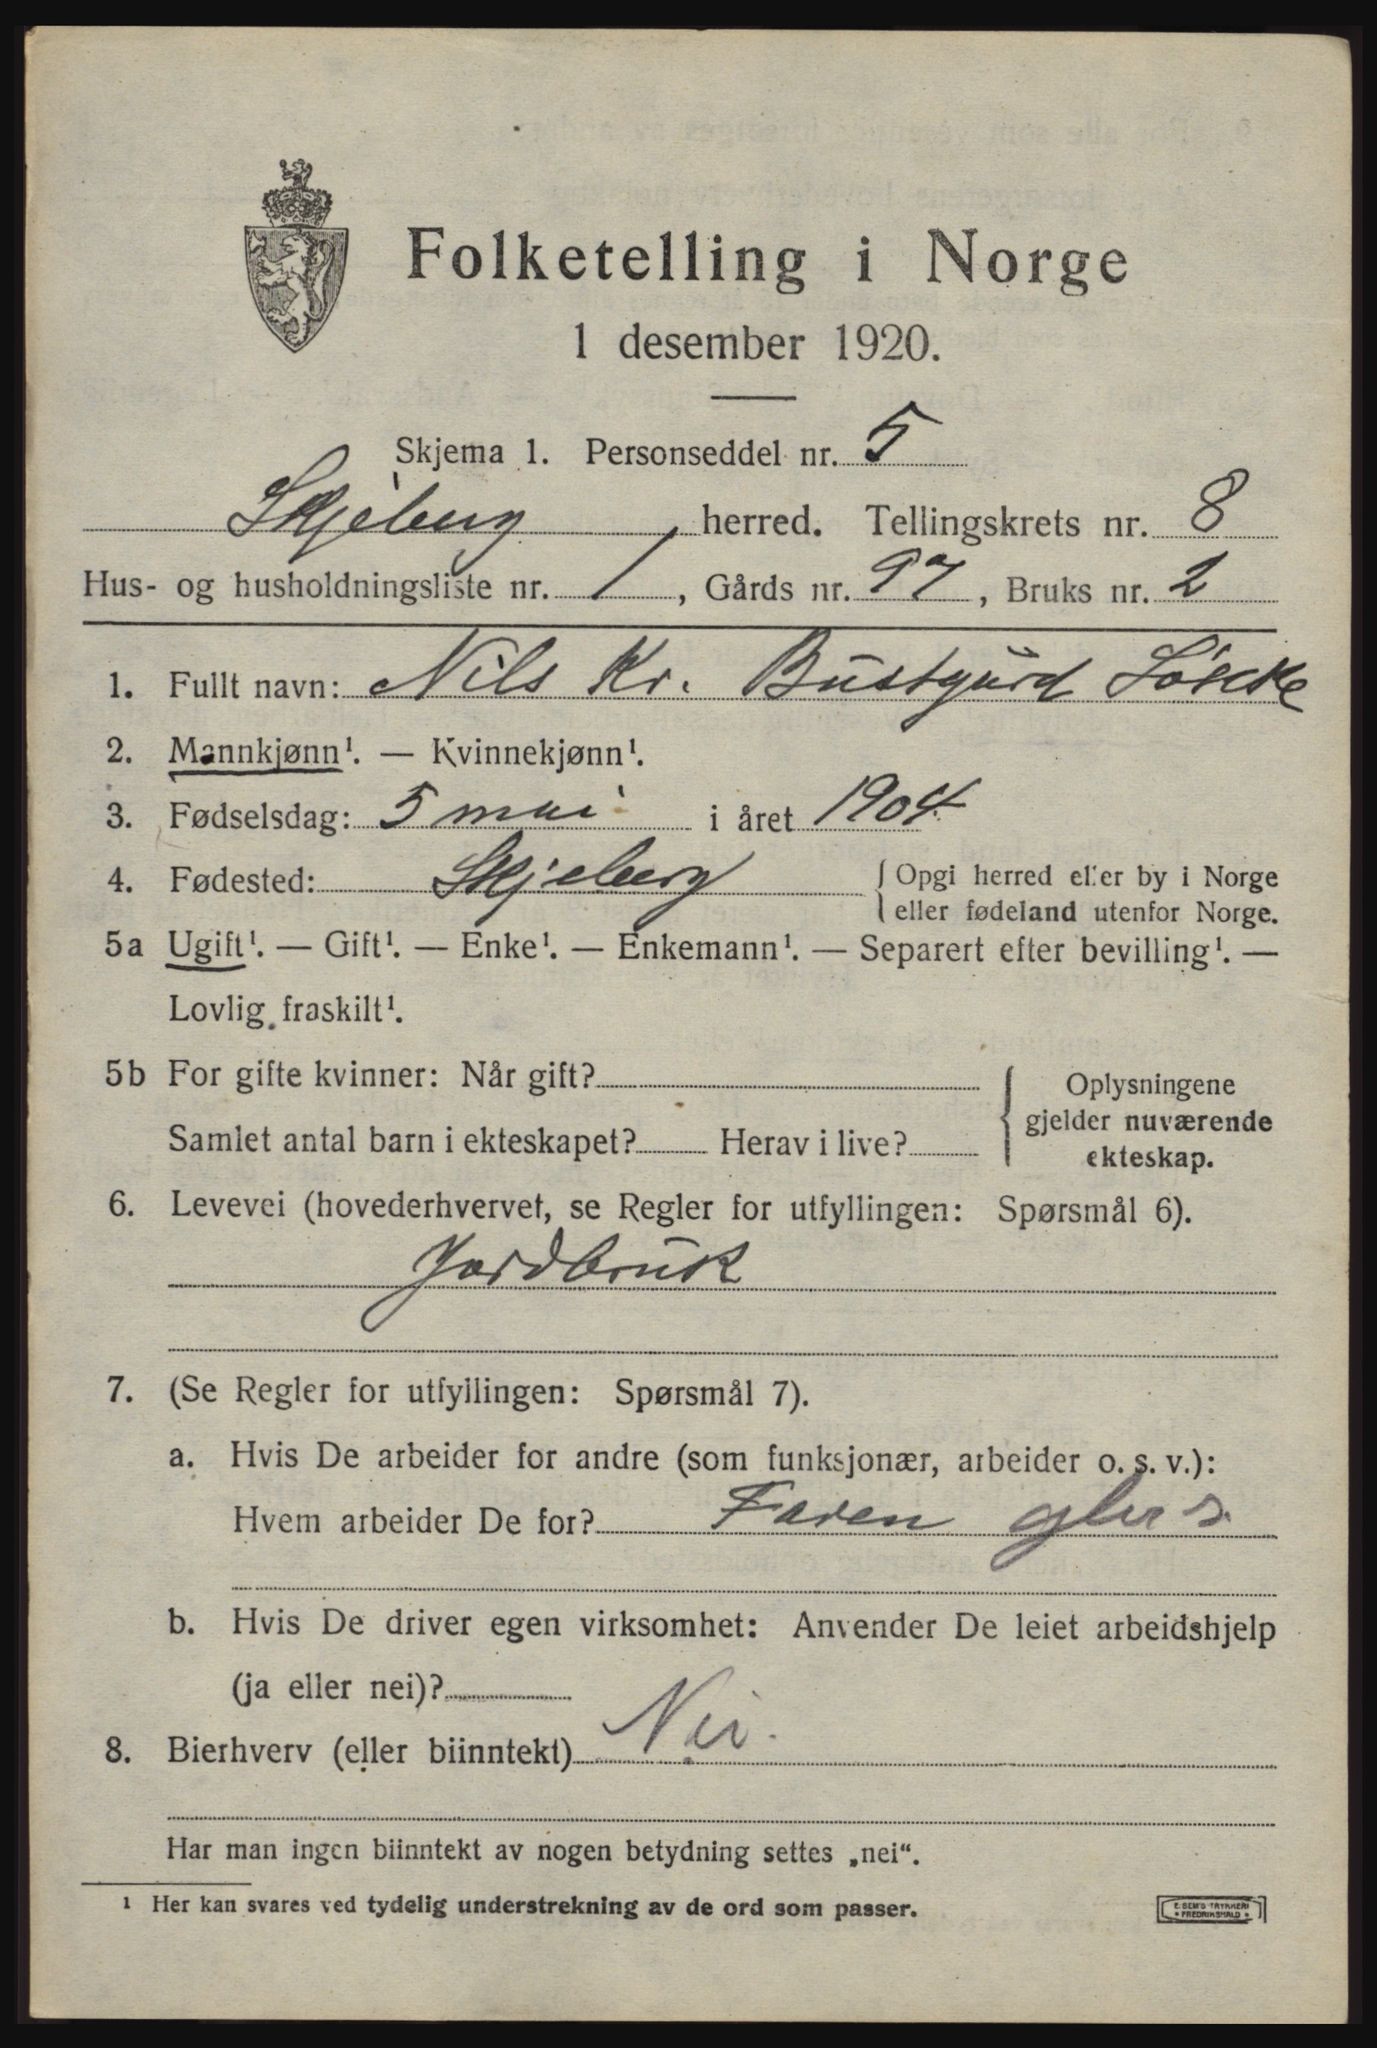 Folketelling i Norge
1 desember 1920.
Skjema 1. Personseddel nr. 5
Skjeberg herred. Tellingskrets nr. 8
Hus- og husholdningsliste nr. 1, Gårds nr. 97, Bruks nr. 2
1. Fullt navn: Nils Kr. Bustgård
2. Mannkjønn¹. — Kvinnekjønn¹.
3. Fødselsdag: 5 mai i året 1904
4. Fødested: Skjeberg { Opgi herred eller by i Norge
eller fødeland utenfor Norge.
5a Ugift¹. — Gift¹. — Enke¹. — Enkemann¹. — Separert efter bevilling¹. —
Lovlig fraskilt¹.
5b For gifte kvinner: Når gift?
Samlet antal barn i ekteskapet? Herav i live?
{ Oplysningene
gjelder nuværende
ekteskap.
6. Levevei (hovederhvervet, se Regler for utfyllingen: Spørsmål 6).
Jordbruk
7. (Se Regler for utfyllingen: Spørsmål 7).
a. Hvis De arbeider for andre (som funksjonær, arbeider o. s. v.):
Hvem arbeider De for? Faren
b. Hvis De driver egen virksomhet: Anvender De leiet arbeidshjelp
(ja eller nei)?
8. Bierhverv (eller biinntekt) Nei.
Har man ingen biinntekt av nogen betydning settes „nei“.
¹ Her kan svares ved tydelig understrekning av de ord som passer.
E. SEM'S TRYKKERI
• FREDRIKSHALD •